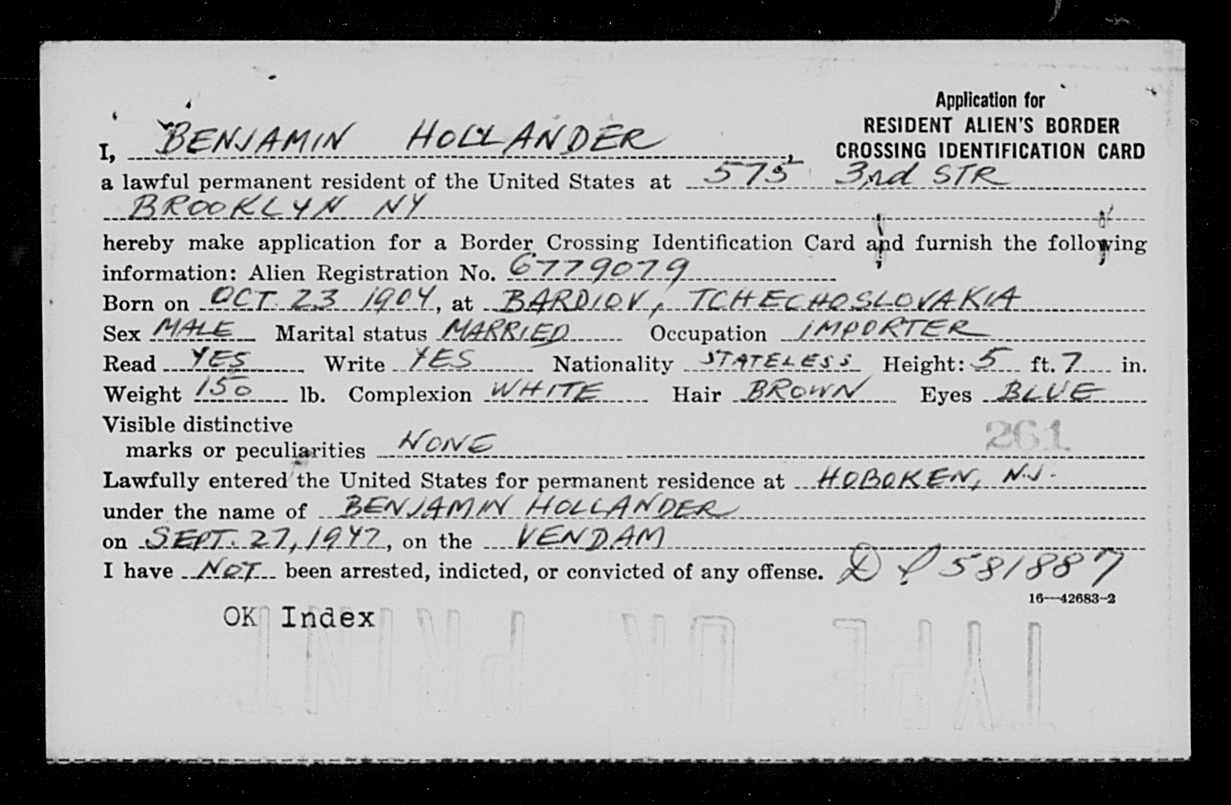 Application for
RESIDENT ALIEN'S BORDER
CROSSING IDENTIFICATION CARD
I, BENJAMIN HOLLANDER,
a lawful permanent resident of the United States at 575 3rd STR
BROOKLYN NY
hereby make application for a Border Crossing Identification Card and furnish the following
information: Alien Registration No. 6779079
Born on OCT. 23 1904, at BARDIOV, TCHECHOSLOVAKIA
Sex MALE Marital status MARRIED Occupation IMPORTER
Read YES Write YES Nationality STATELESS Height: 5 ft. 7 in.
Weight 150 lb. Complexion WHITE Hair BROWN Eyes BLUE
Visible distinctive
marks or peculiarities NONE
261
Lawfully entered the United States for permanent residence at HOBOKEN, N.J.
under the name of BENJAMIN HOLLANDER
on SEPT. 27, 1947, on the VENDAM
I have NOT been arrested, indicted, or convicted of any offense. 581887
16—42683-2
OK Index
TYPE OR PRINT